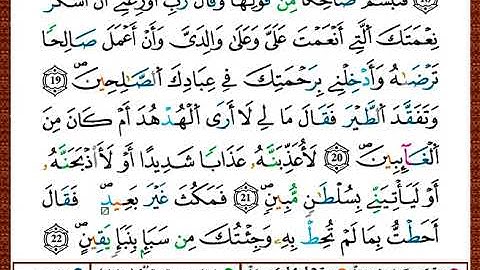 فَتَبَسَّمَ ضَاحِكًا مِّن قَوْلِهَا وَقَالَ رَبِّ أَوْزِعْنِىٓ أَنْ أَشْكُرَ
نِعْمَتَكَ ٱلَّتِىٓ أَنْعَمْتَ عَلَىَّ وَعَلَىٰ وَٰلِدَىَّ وَأَنْ أَعْمَلَ صَٰلِحًا
تَرْضَىٰهُ وَأَدْخِلْنِى بِرَحْمَتِكَ فِى عِبَادِكَ ٱلصَّٰلِحِينَ ١٩
وَتَفَقَّدَ ٱلطَّيْرَ فَقَالَ مَا لِىَ لَآ أَرَى ٱلْهُدْهُدَ أَمْ كَانَ مِنَ
ٱلْغَآئِبِينَ ٢٠ لَأُعَذِّبَنَّهُۥ عَذَابًا شَدِيدًا أَوْ لَأَا۟ذْبَحَنَّهُۥٓ
أَوْ لَيَأْتِيَنِّى بِسُلْطَٰنٍ مُّبِينٍ ٢١ فَمَكَثَ غَيْرَ بَعِيدٍ فَقَالَ
أَحَطتُ بِمَا لَمْ تُحِطْ بِهِۦ وَجِئْتُكَ مِن سَبَإٍۭ بِنَبَإٍ يَقِينٍ ٢٢